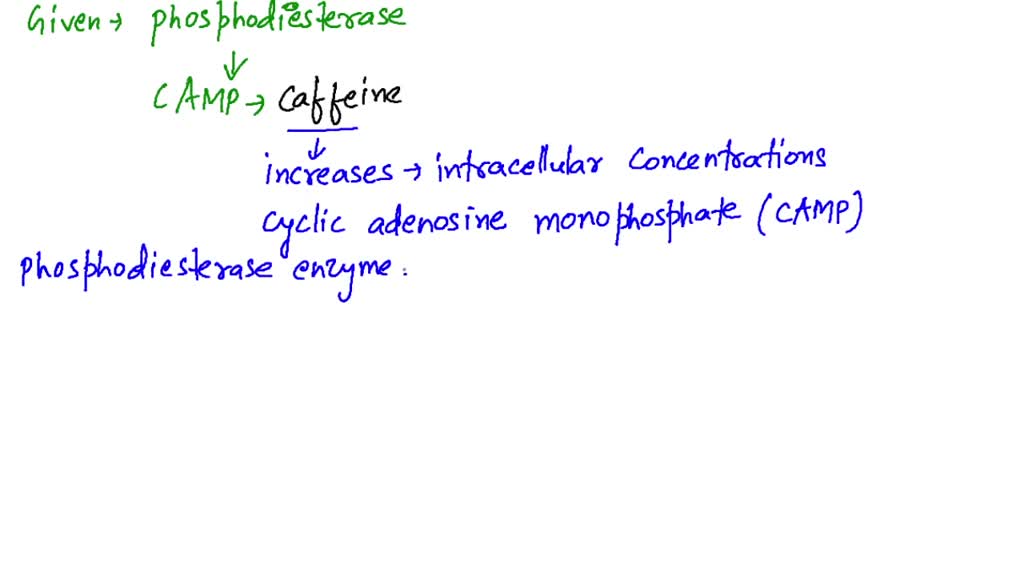 Given → phosphodiesterase
↓
CAMP → caffeine
↓
increases → intracellular concentrations
cyclic adenosine monophosphate (CAMP)
phosphodiesterase enzyme.